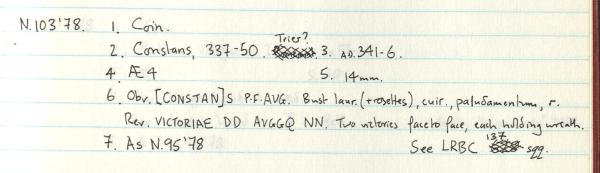 N.103'78. 1. Coin.
2. Constans, 337-50. Trier? 3. AD.341-6.
4. Æ4 5. 14mm.
6. Obv. [CONSTAN]S P.F.AVG. Bust laur. (+rosettes), cuir., paludamentum, r.
Rev. VICTORIAE DD AVGGQ NN. Two victories face to face, each holding wreath.
7. As N.95'78 See LRBC 137 sqq.